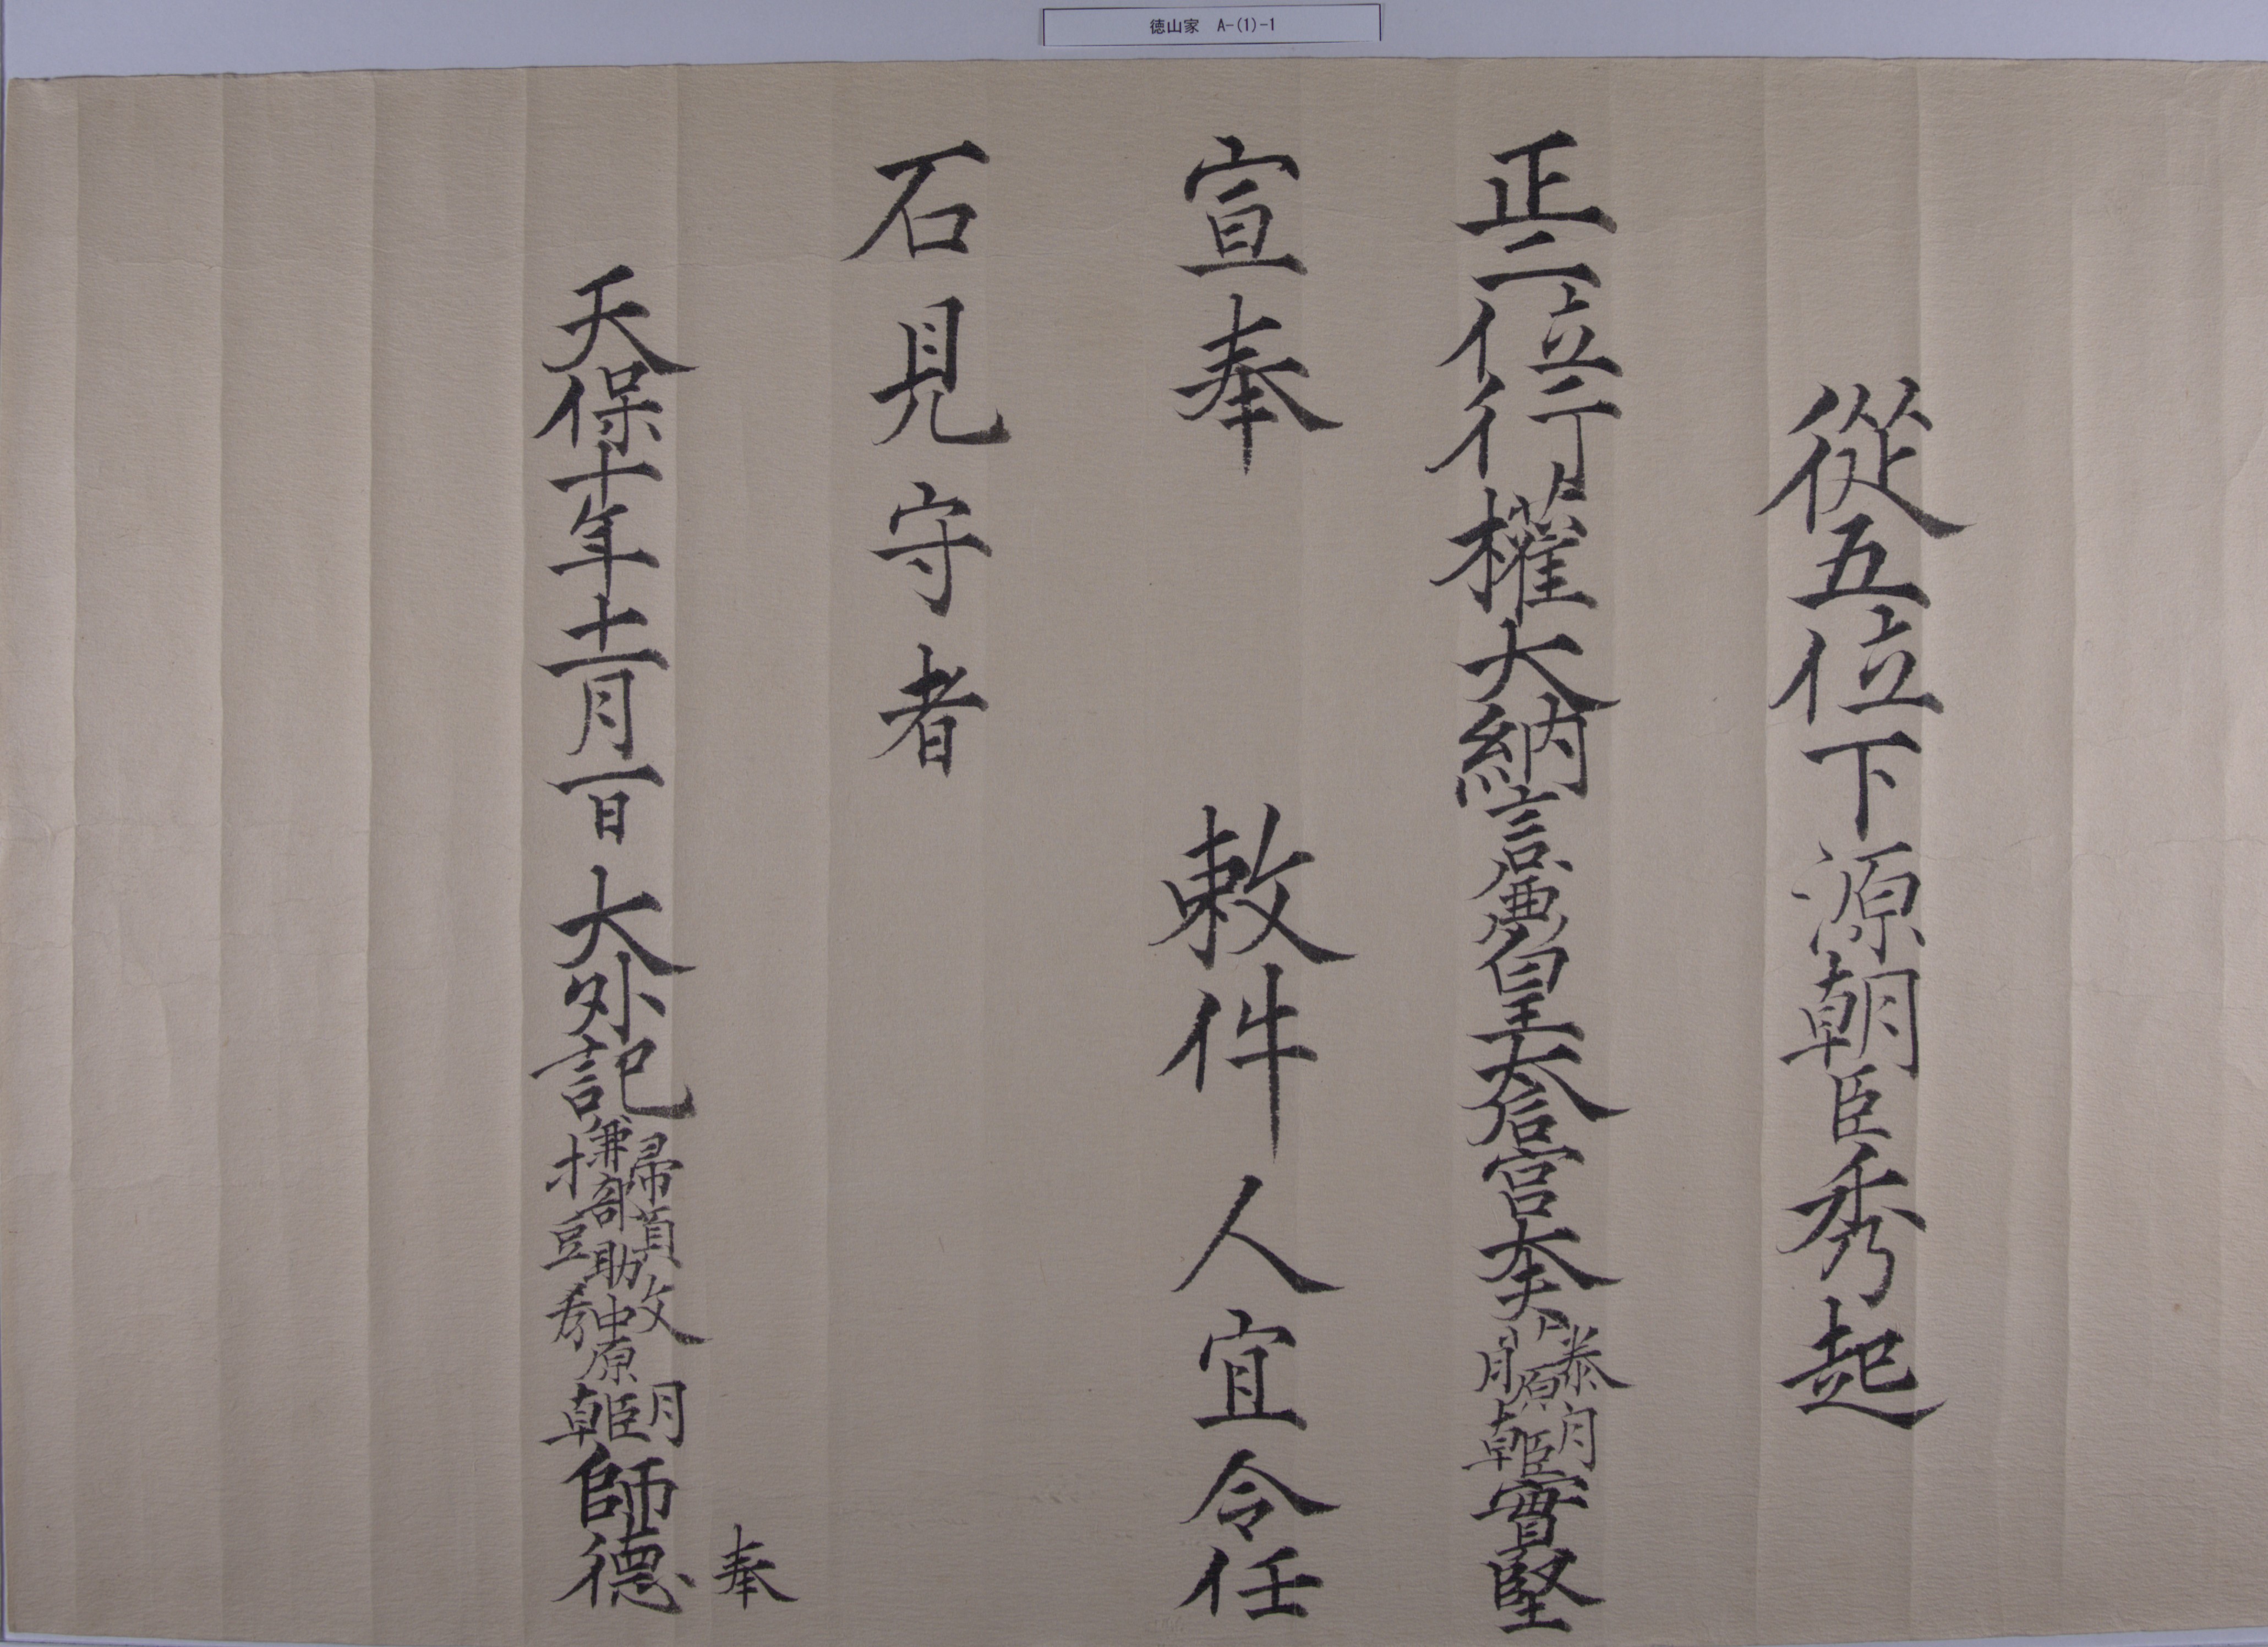 徳山家 A-(1)-1
從五位下源朝臣秀起
正二位行權大納言兼皇太后宮大夫藤原朝臣實堅
宣奉 敕件人宜令任
石見守者
天保十年十一月一日 大外記兼掃部頭助教中原朝臣師德 奉